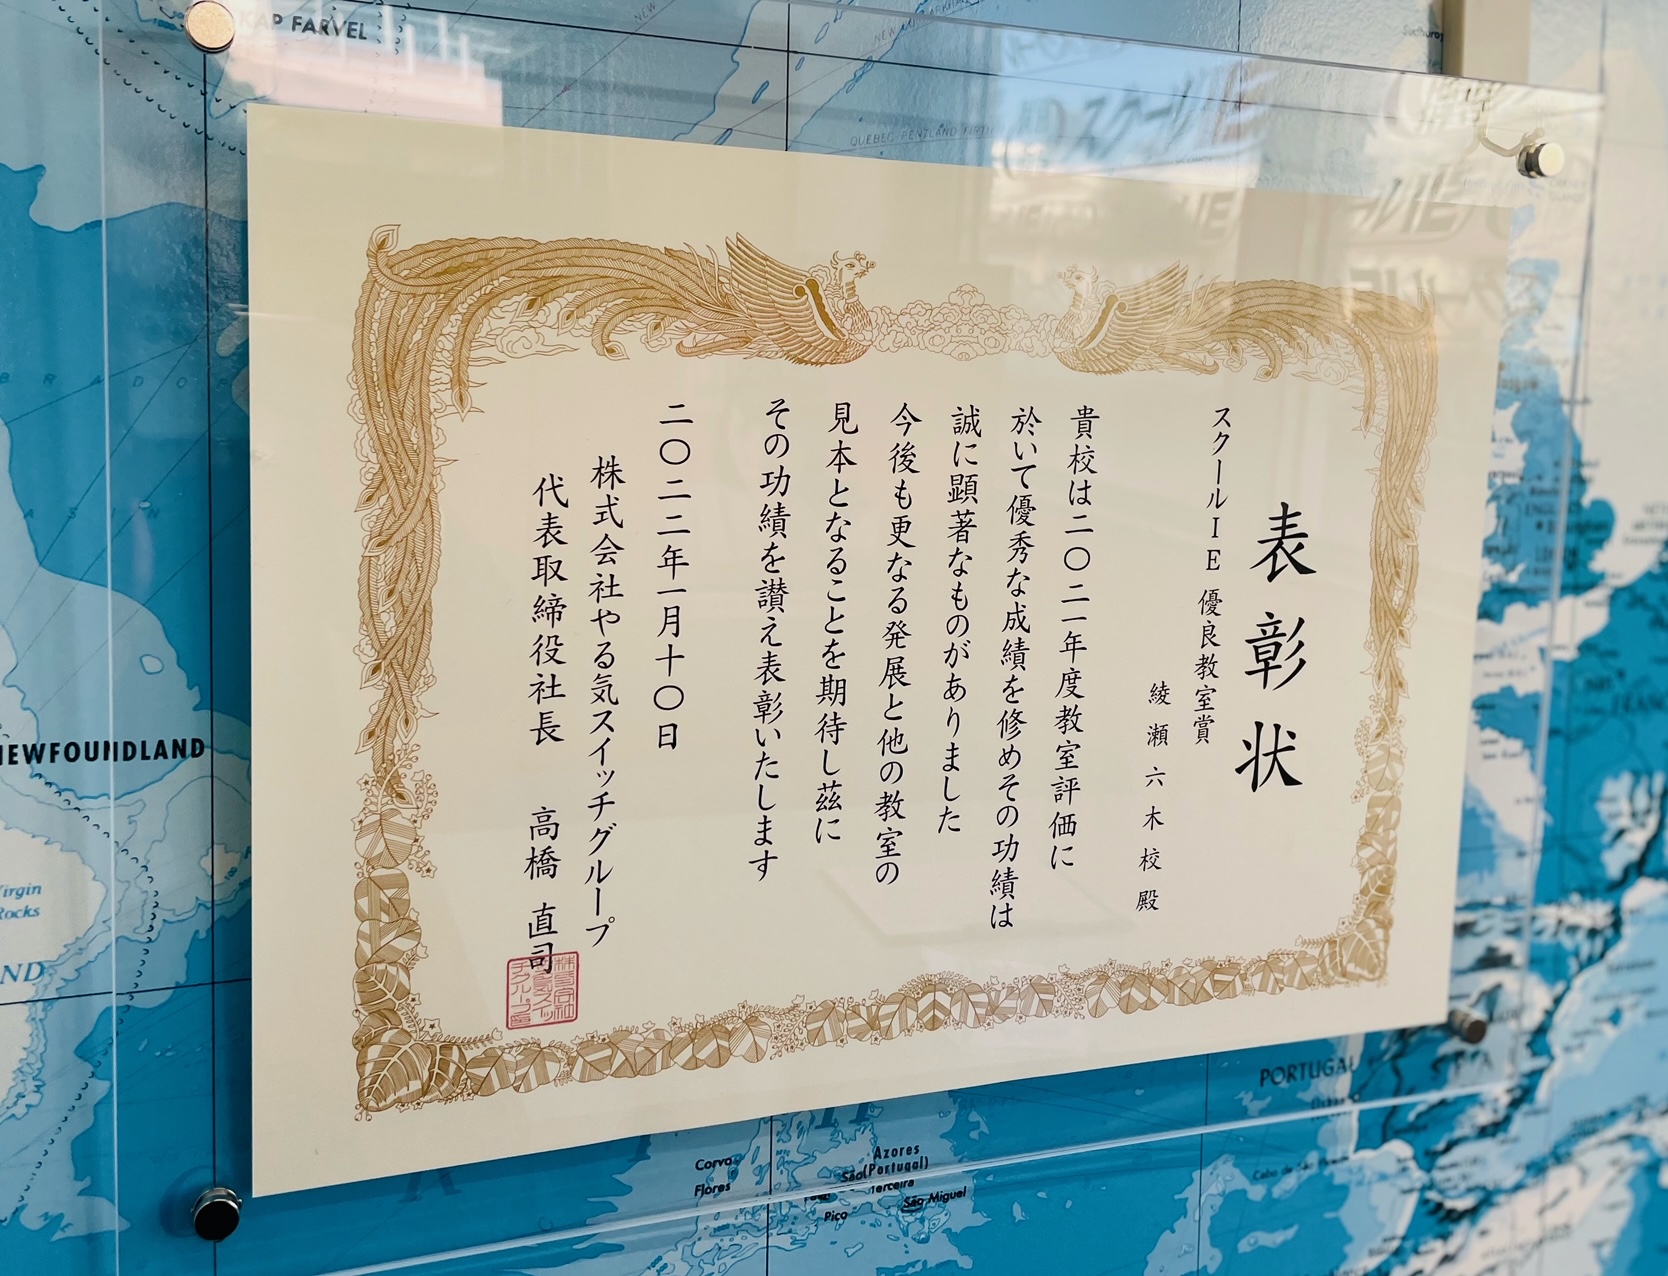 表彰状
スクールIE 優良教室賞
綾瀬六木校殿
貴校は二〇二一年度教室評価に
於いて優秀な成績を修めその功績は
誠に顕著なものがありました
今後も更なる発展と他の教室の
見本となることを期待し茲に
その功績を讃え表彰いたします
二〇二二年一月十〇日
株式会社やる気スイッチグループ
代表取締役社長 高橋 直司
KAP FARVEL
NEWFOUNDLAND
Virgin
Rocks
ND
PORTUGAL
Azores
(Portugal)
Corvo
Flores
São
Terceira
Pico
São Miguel